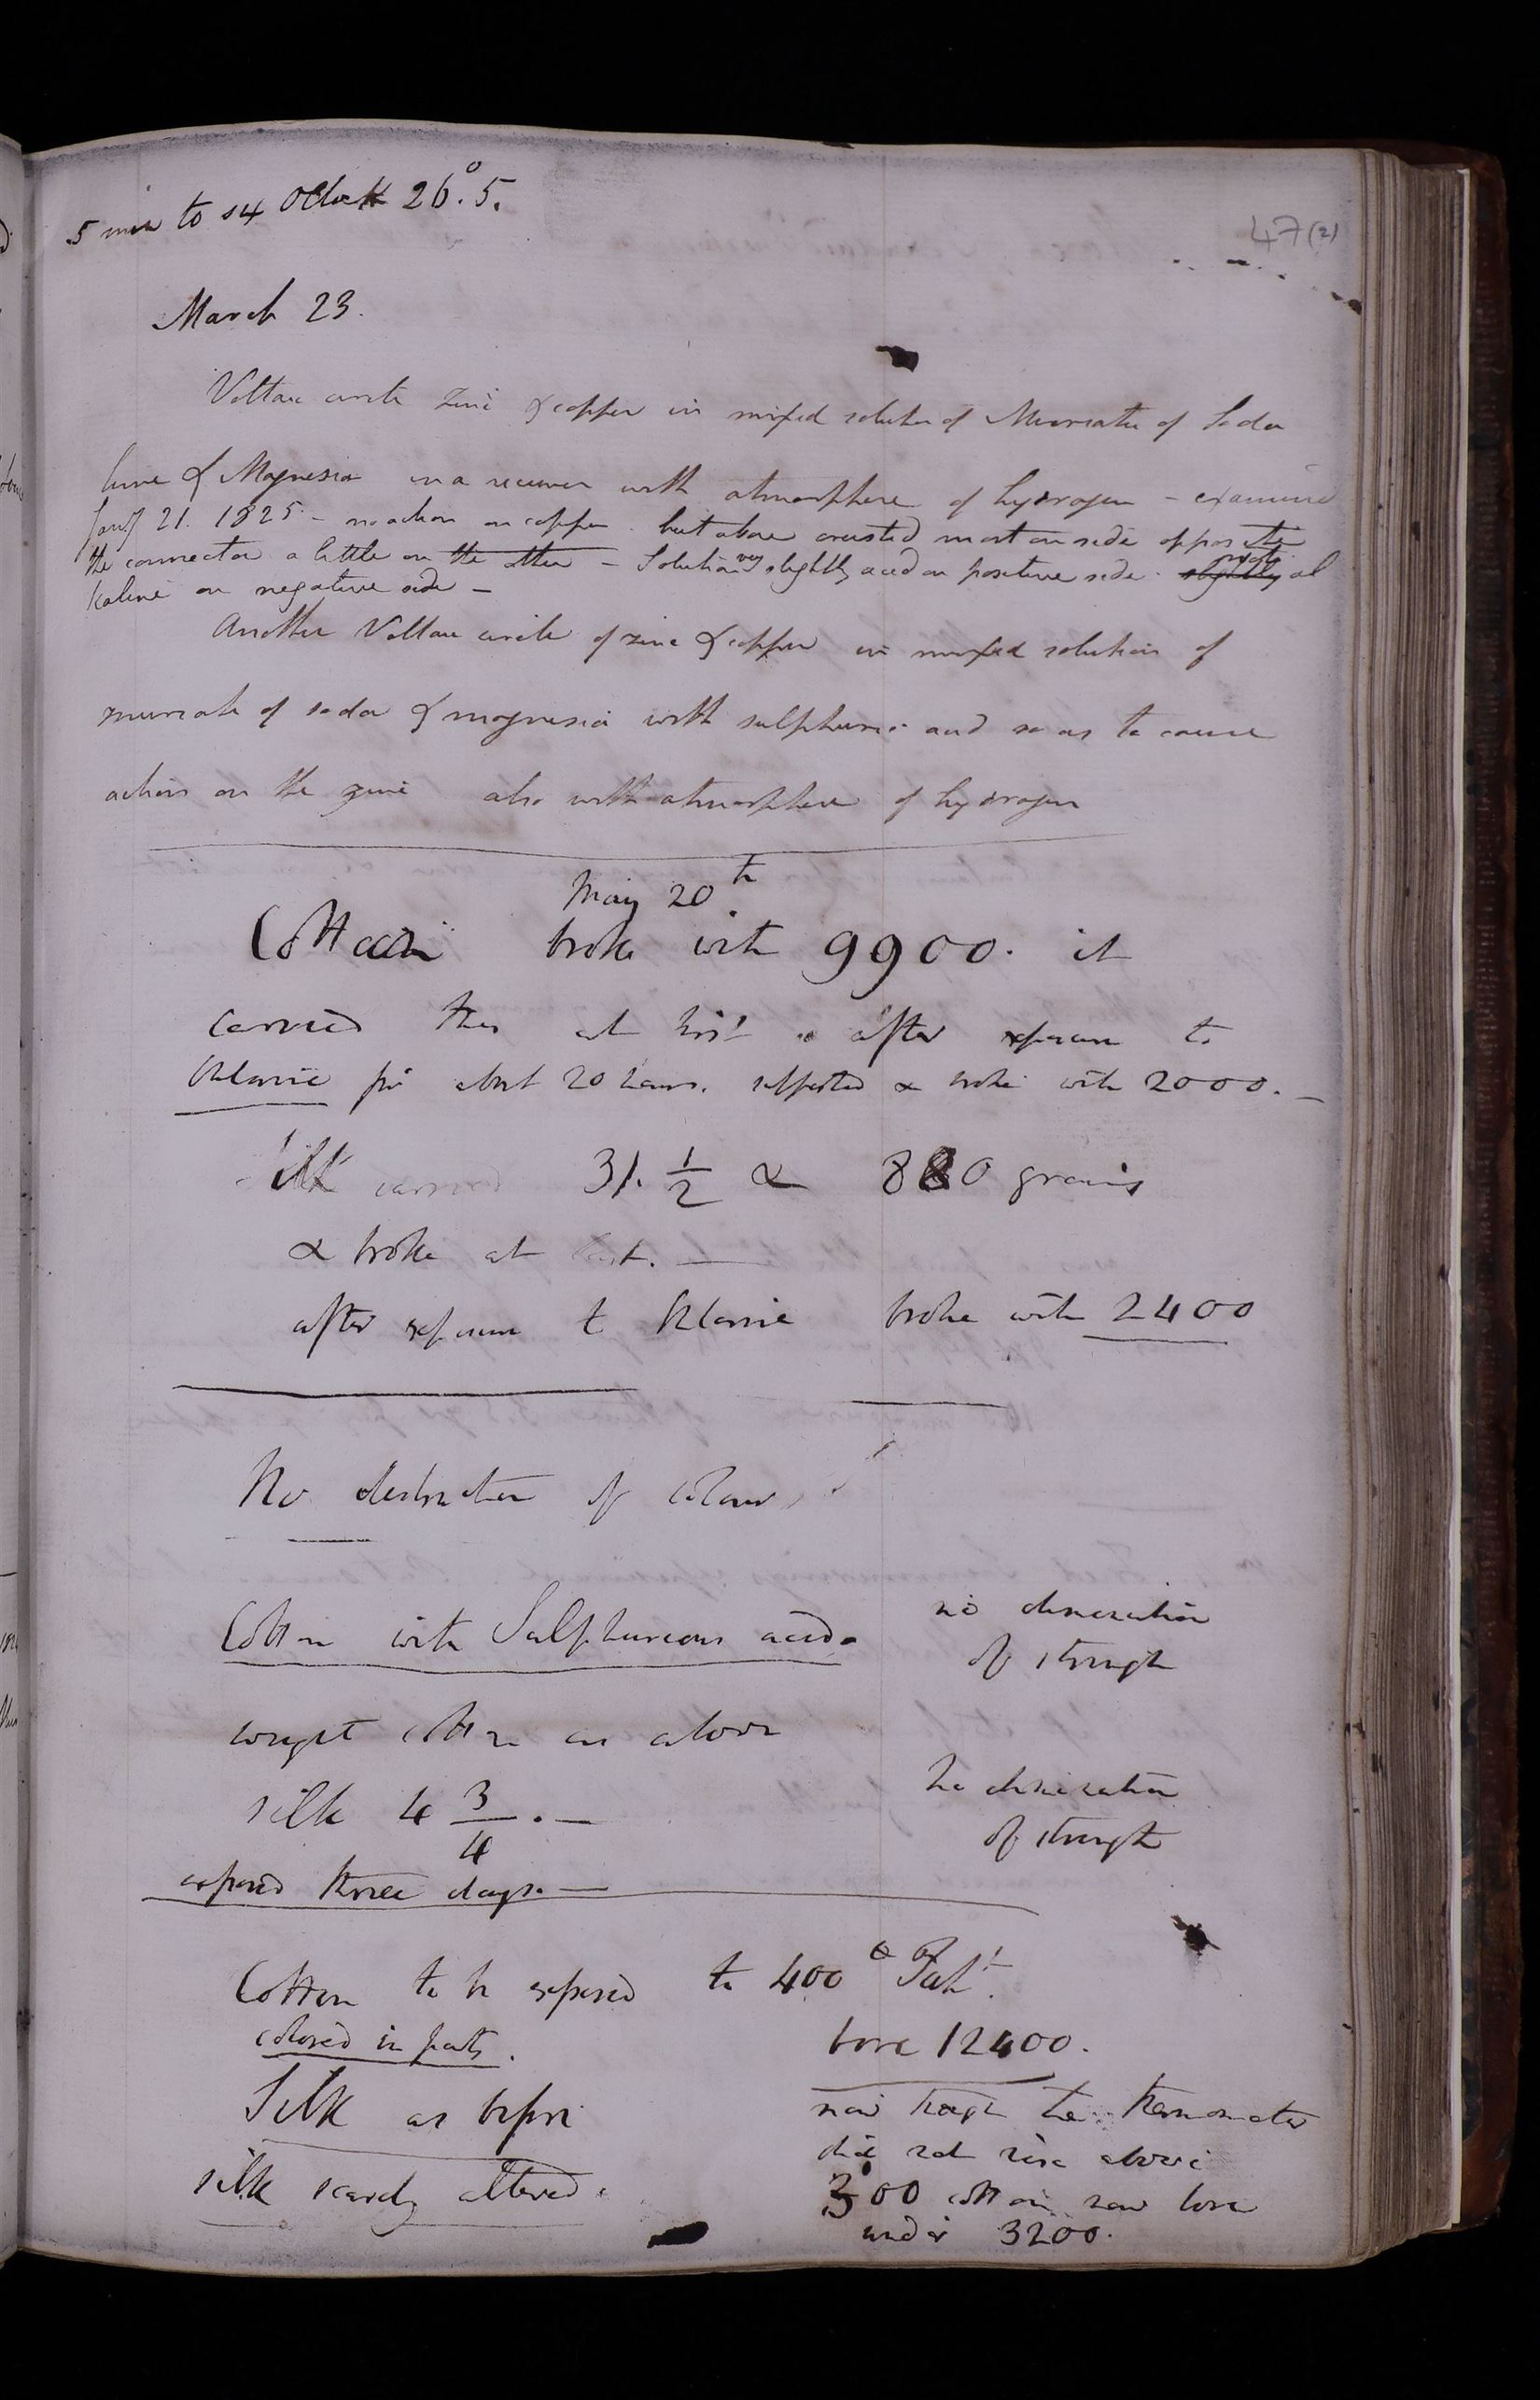 5 min to 4 OClock 26°.5.
47(2)
March 23.
Voltaic circle zinc & copper in mixed solution of Muriate of Soda
lime & Magnesia in a receiver with atmosphere of hydrogen - examined
Jany 21. 1825 - no action on copper but above crusted most on side opposite
the connector a little on the other - Solution very slightly acid on positive side. slightly al
kaline on negative side -
Another Voltaic circle of zinc & copper in mixed solution of
muriate of soda & magnesia with sulphuric acid so as to cause
action on the zinc also with atmosphere of hydrogen
May 20th
Cotton broke with 9900. it
carried this at first & after exposure to
Chlorine for about 20 hours. supported & broke with 2000. -
Silk carried 31. 1/2 & 880 grains
& broke at last. -
after exposure to Chlorine broke with 2400
No destruction of colour
Cotton with Sulphureous acid.
no diminution
of strength
weight cotton as above
silk 4 3/4 . -
no diminution
of strength
exposed three days. -
Cotton to be exposed to 400° Faht.
colored in parts.
bore 12400.
Silk as before
now though the thermometer
did not rise above
silk scarcely altered.
300 cotton now bore
under 3200.